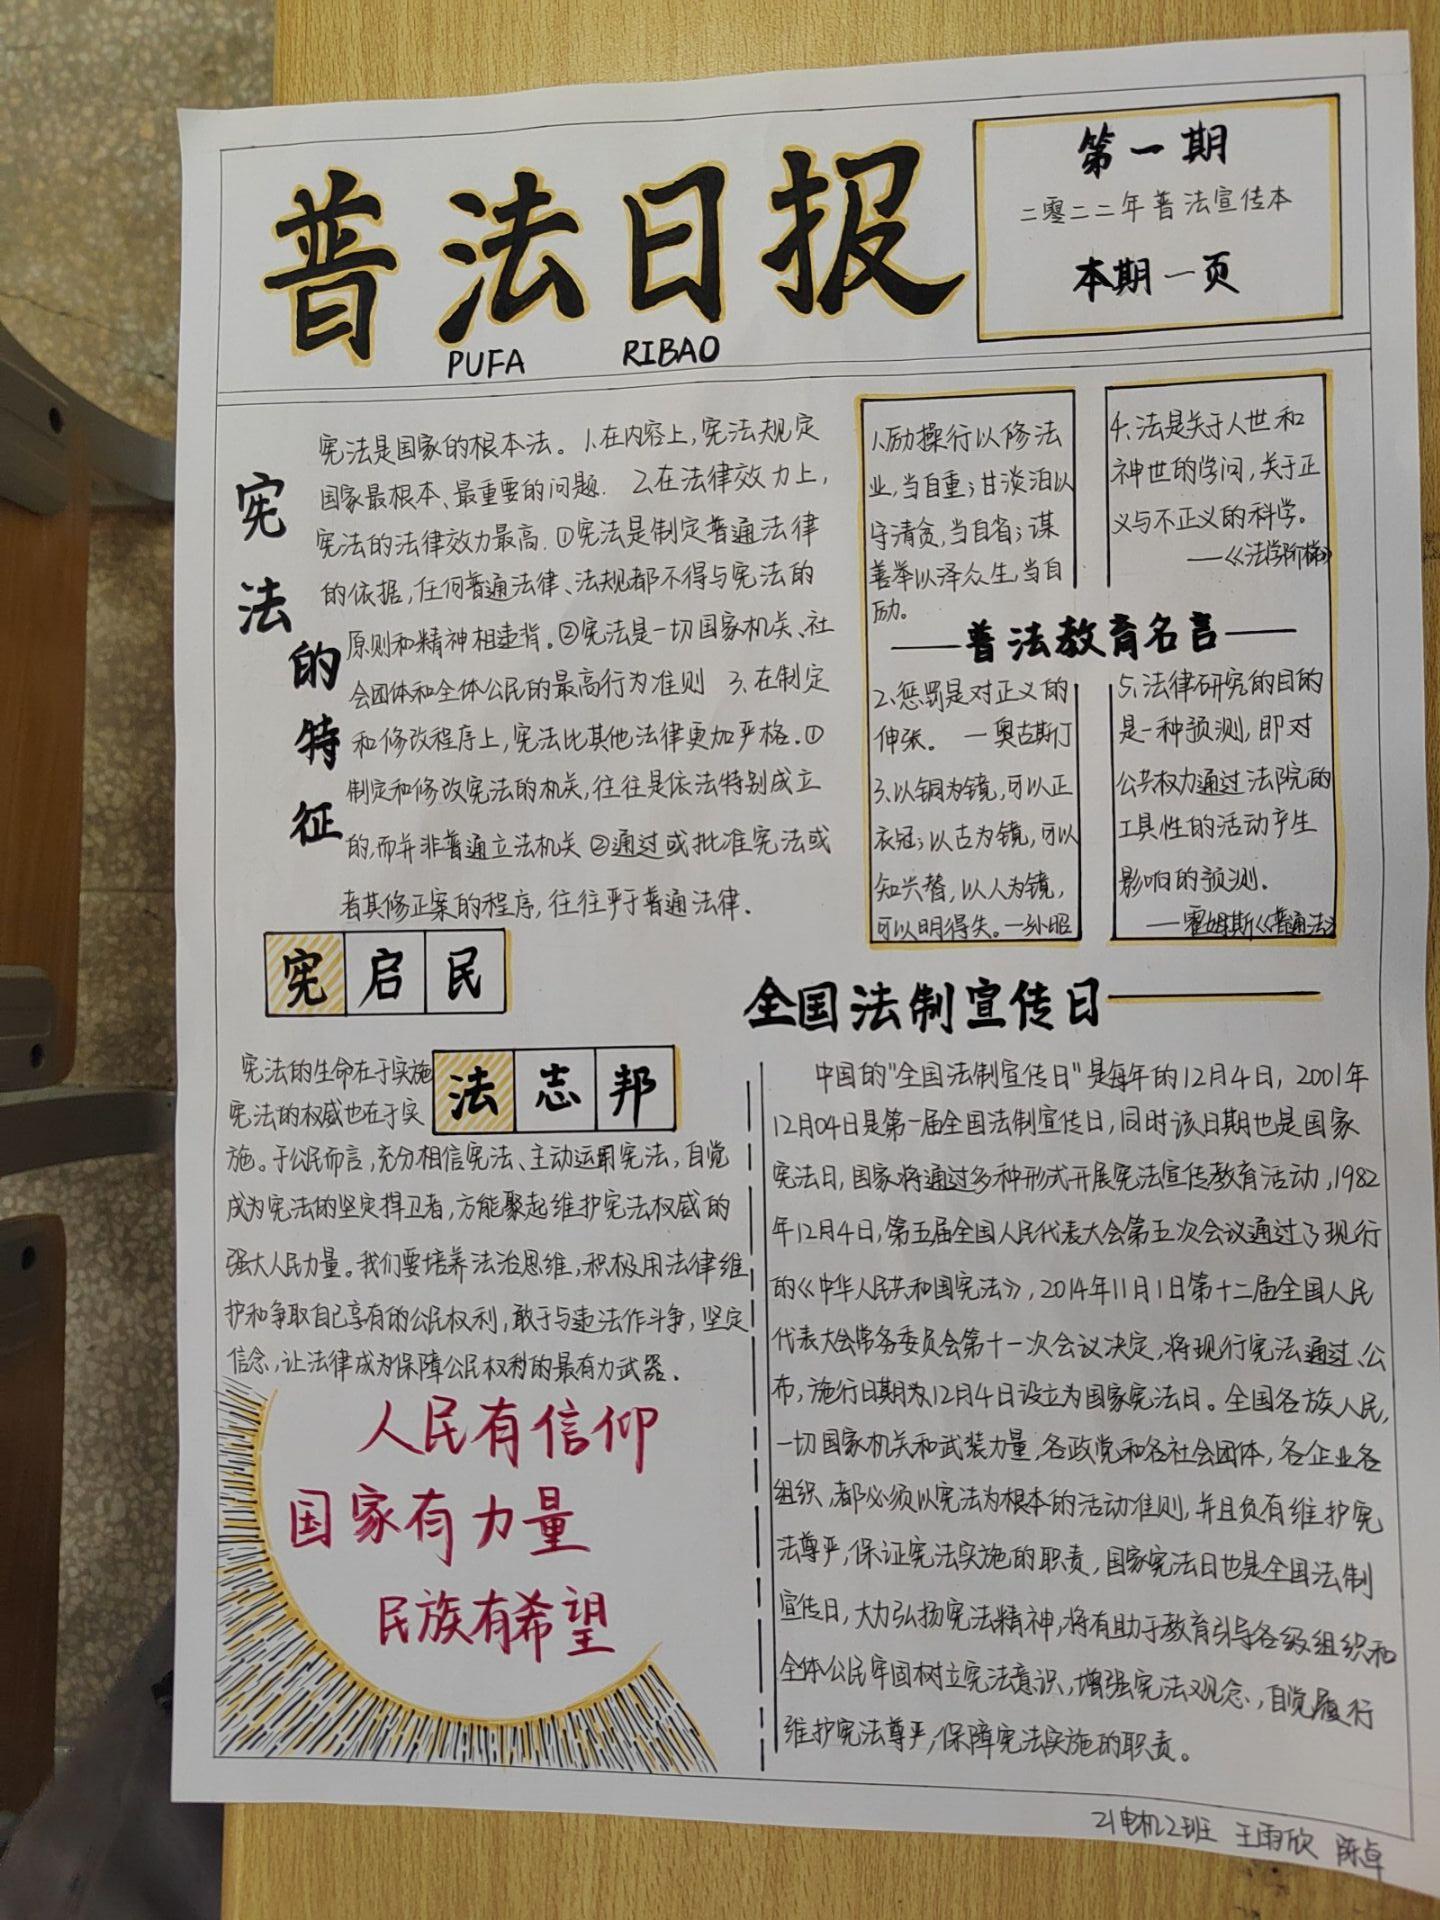 普法日报
PUFA RIBAO
第一期
二零二二年普法宣传本
本期一页
宪法的特征
宪法是国家的根本法。1.在内容上，宪法规定
国家最根本、最重要的问题. 2.在法律效力上，
宪法的法律效力最高.①宪法是制定普通法律
的依据，任何普通法律、法规都不得与宪法的
原则和精神相违背。②宪法是一切国家机关、社
会团体和全体公民的最高行为准则 3、在制定
和修改程序上，宪法比其他法律更加严格.①
制定和修改宪法的机关，往往是依法特别成立
的，而并非普通立法机关②通过或批准宪法或
者其修正案的程序，往往严于普通法律.
1.励操行以修法
业，当自重；甘淡泊以
守清贪，当自省；谋
善举以泽众生，当自
励。
4、法是关于人世和
神世的学问，关于正
义与不正义的科学。
——《法学阶梯》
——普法教育名言——
2、惩罚是对正义的
伸张。 —奥古斯丁
3、以铜为镜，可以正
衣冠；以古为镜，可以
知兴替，以人为镜，
可以明得失。—孙昭
5、法律研究的目的
是一种预测，即对
公共权力通过法院的
工具性的活动产生
影响的预测.
——霍姆斯《普通法》
宪启民
法志邦
宪法的生命在于实施
宪法的权威也在于实
施。于公民而言，充分相信宪法、主动运用宪法，自觉
成为宪法的坚定捍卫者，方能聚起维护宪法权威的
强大人民力量。我们要培养法治思维，积极用法律维
护和争取自己享有的公民权利，敢于与违法作斗争，坚定
信念，让法律成为保障公民权利的最有力武器.
人民有信仰
国家有力量
民族有希望
全国法制宣传日——
中国的"全国法制宣传日"是每年的12月4日，2001年
12月04日是第一届全国法制宣传日，同时该日期也是国家
宪法日，国家将通过多种形式开展宪法宣传教育活动，1982
年12月4日，第五届全国人民代表大会第五次会议通过了现行
的《中华人民共和国宪法》，2014年11月1日第十二届全国人民
代表大会常务委员会第十一次会议决定，将现行宪法通过、公
布，施行日期为12月4日设立为国家宪法日。全国各族人民，
一切国家机关和武装力量，各政党和各社会团体，各企业各
组织，都必须以宪法为根本的活动准则，并且负有维护宪
法尊严，保证宪法实施的职责，国家宪法日也是全国法制
宣传日，大力弘扬宪法精神，将有助于教育引导各级组织和
全体公民牢固树立宪法意识，增强宪法观念，自觉履行
维护宪法尊严，保障宪法实施的职责。
21电机2班 王雨欣 陈卓